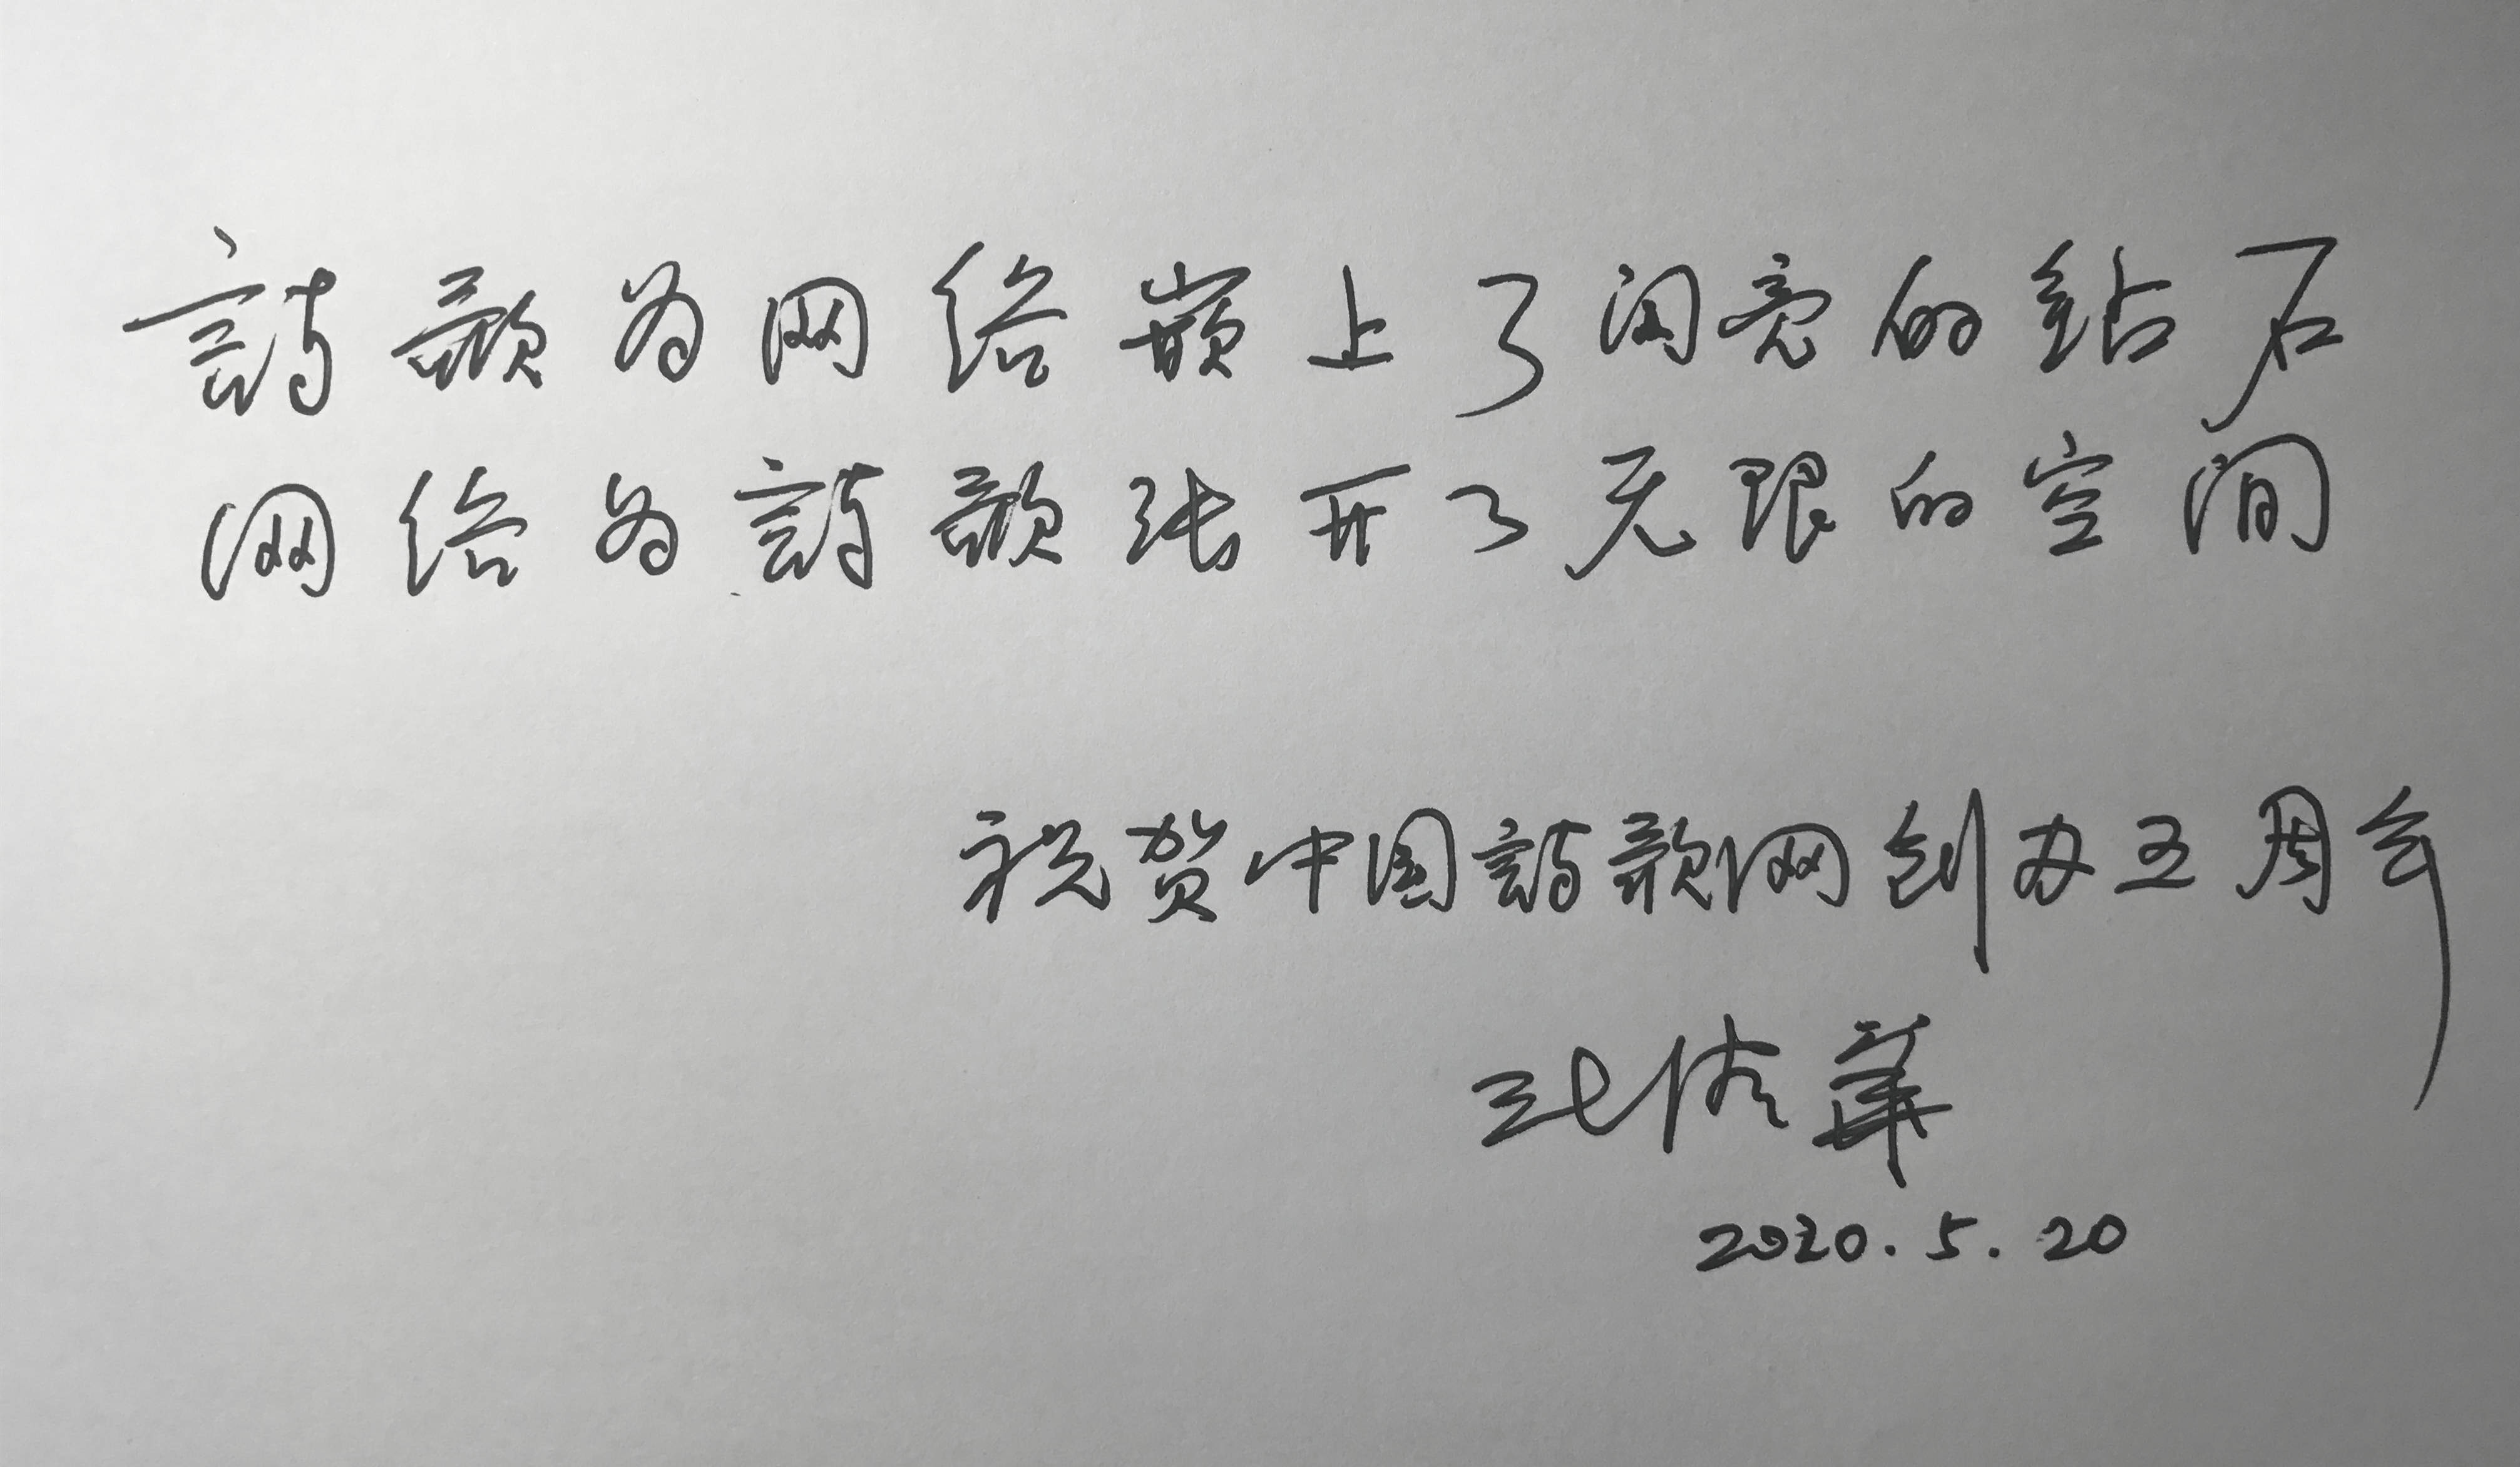 詩歌为网络嵌上了闪亮的钻石
网络为詩歌张开了无限的空间
祝贺中国詩歌网创办五周年
2020.5.20